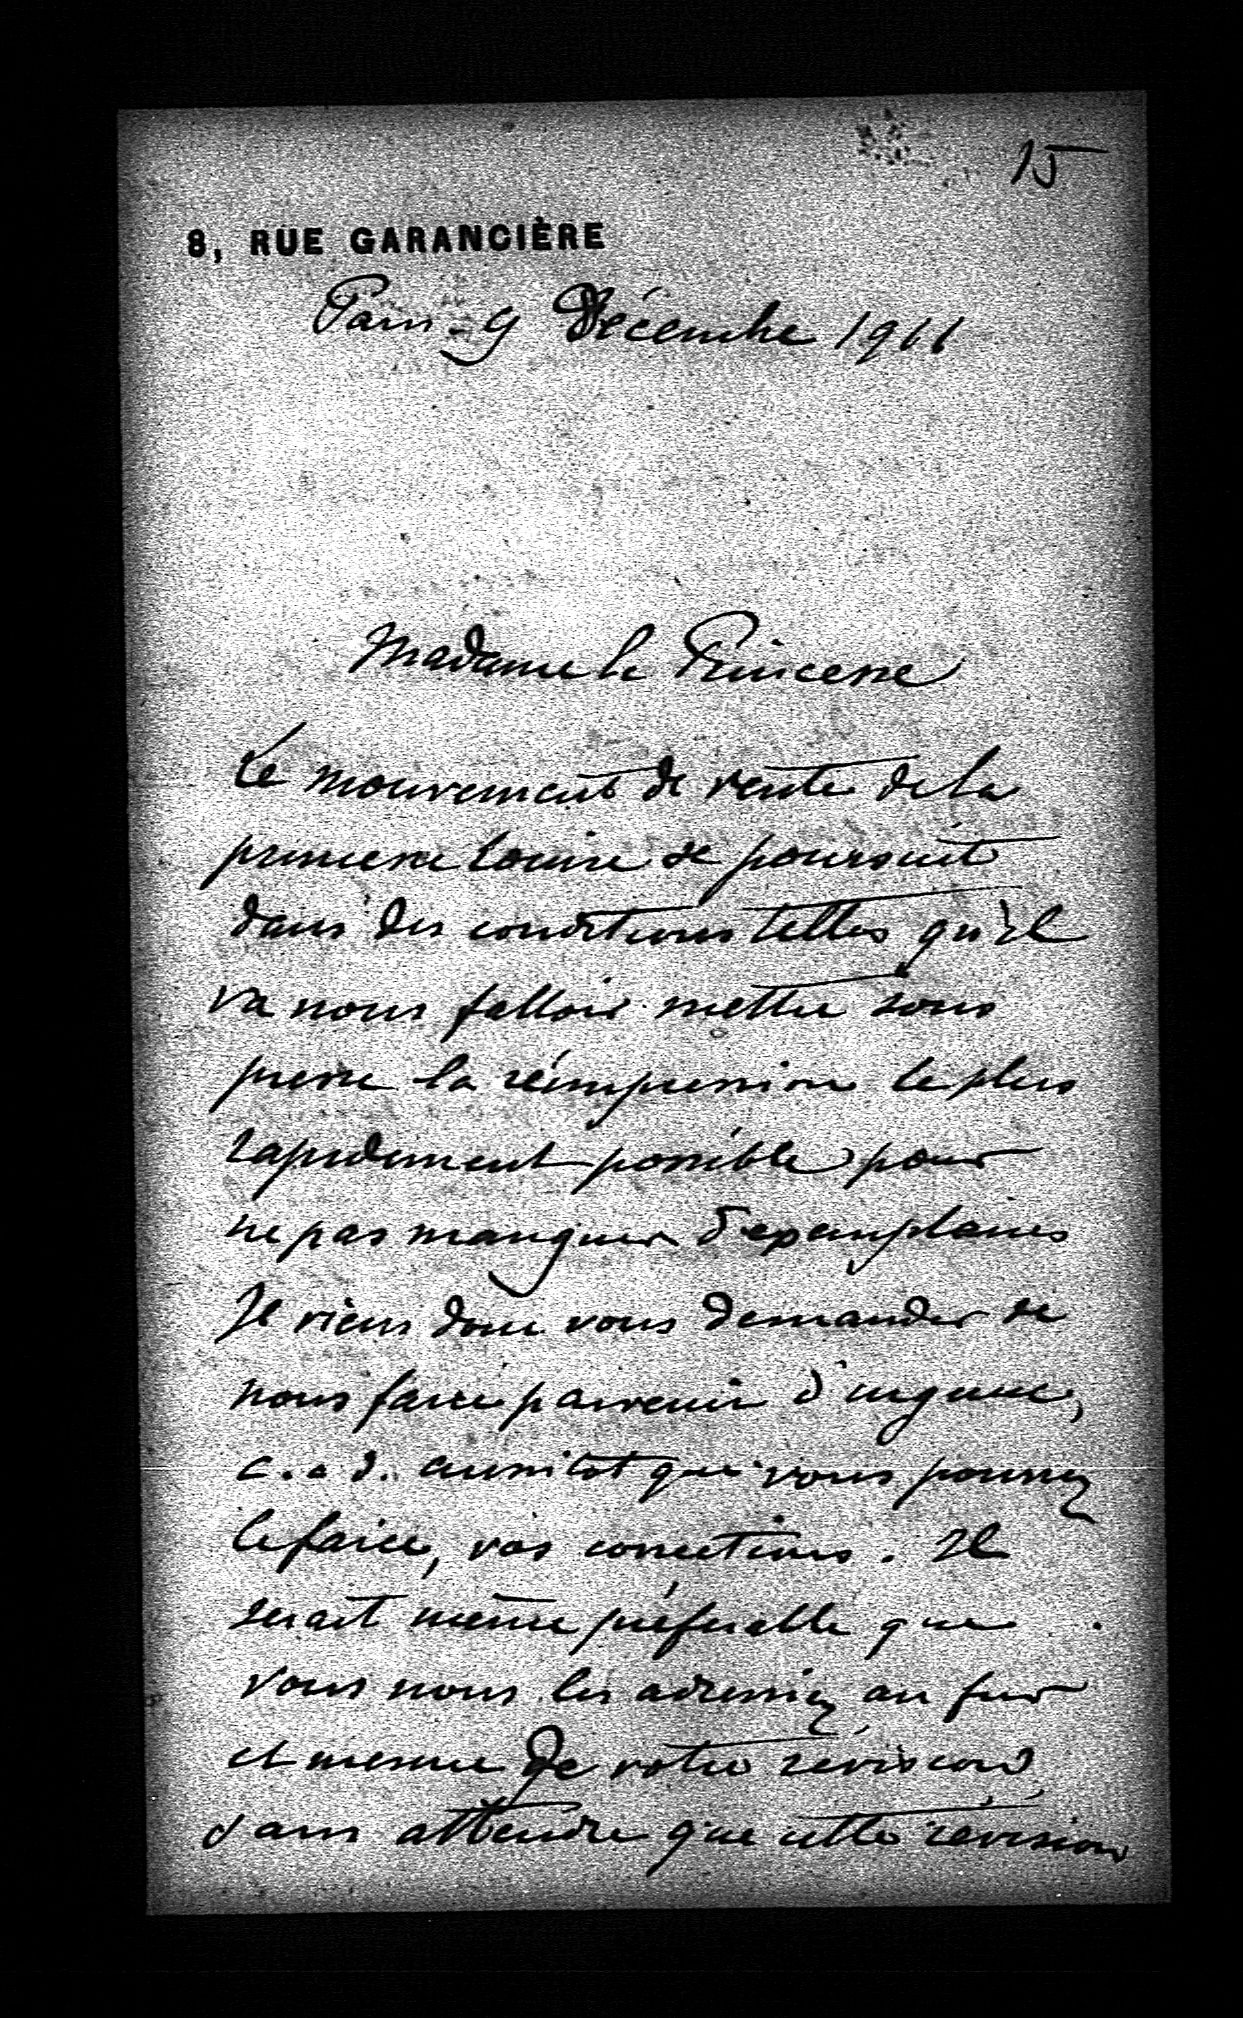 15
8, RUE GARANCIÈRE
Paris 9 Décembre 1911
Madame la Princesse
Le mouvement de vente de la
princesse Louise se poursuit
dans des conditions telles qu'il
va nous falloir mettre sous
presse la réimpression le plus
rapidement possible pour
ne pas manquer d'exemplaires
Je viens donc vous demander de
nous faire parvenir d'urgence,
c.a d. aussitot que vous pourrez
le faire, vos corrections. Il
serait même préférable que
vous nous les adressiez au fur
et mesure de votre révision
sans attendre que cette révision